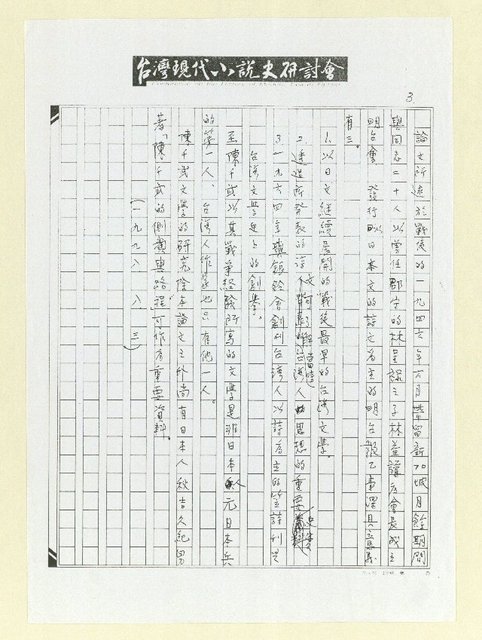 台灣現代小說史研討會
3.
論文所述於戰後的一九四六年六月集留新加坡月餘期間
與同志二十人以曾任郡守的林益謙為會長成立
明台會 發行以日本文的詩文為主的明台報乙事深具意義
有三。
1. 以日文繼續展開的戰後最早的台灣文學。
2. 透過所發表的詩文討台灣人思想的重要
3. 一九六四年與錦餘合創刊台灣人以詩為主的笠詩刊是
台灣文學史上的創舉。
至陳千武以其戰爭經驗所寫的文學是非日本人元日本兵
的第一人、台灣人作家也只有他一人。
陳千武文學的研究除本論文之外尚有日本人秋吉久紀男
著「陳千武的側與路程」可作為重要資料。
(一九九八、八、三)